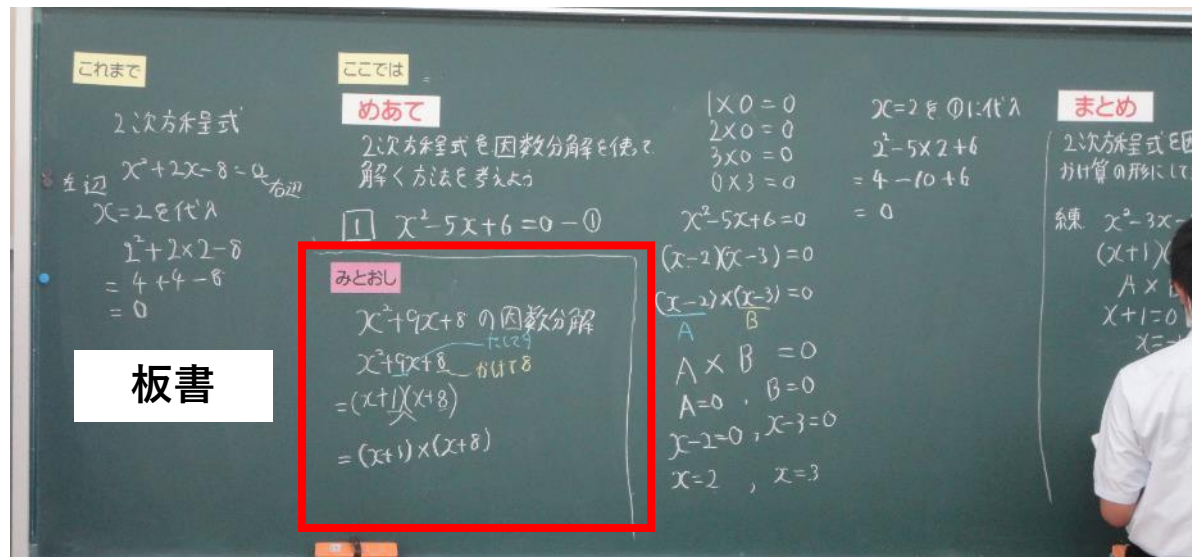 これまで
2次方程式
x²+2x-8=0
左辺 右辺
x=2を代入
2²+2×2-8
=4+4-8
=0
板書
ここでは
めあて
2次方程式を因数分解を使って
解く方法を考えよう
1 x²-5x+6=0-①
みとおし
x²+9x+8の因数分解
たして9
x²+9x+8 かけて8
=(x+1)(x+8)
=(x+1)×(x+8)
1×0=0
2×0=0
3×0=0
0×3=0
x²-5x+6=0
(x-2)(x-3)=0
(x-2)×(x-3)=0
A B
A×B=0
A=0, B=0
x-2=0, x-3=0
x=2, x=3
x=2を①に代入
2²-5×2+6
=4-10+6
=0
まとめ
2次方程式を因
かけ算の形にして
練 x²-3x-
(x+1)(
A×
x+1=0
x=-